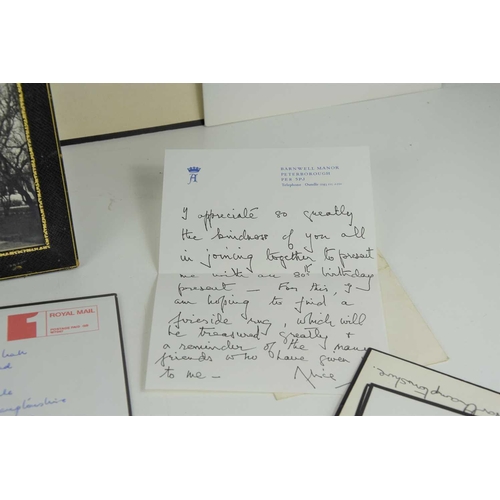 A
BARNWELL MANOR
PETERBOROUGH
PE8 5PJ
Telephone: Oundle
I appreciate so greatly
the kindness of you all
in joining together to present
me with an 80th birthday
present — For this, I
am hoping to find a
fireside rug, which will
be treasured greatly &
a reminder of the many
friends who have given
to me —
Alice
1
ROYAL MAIL